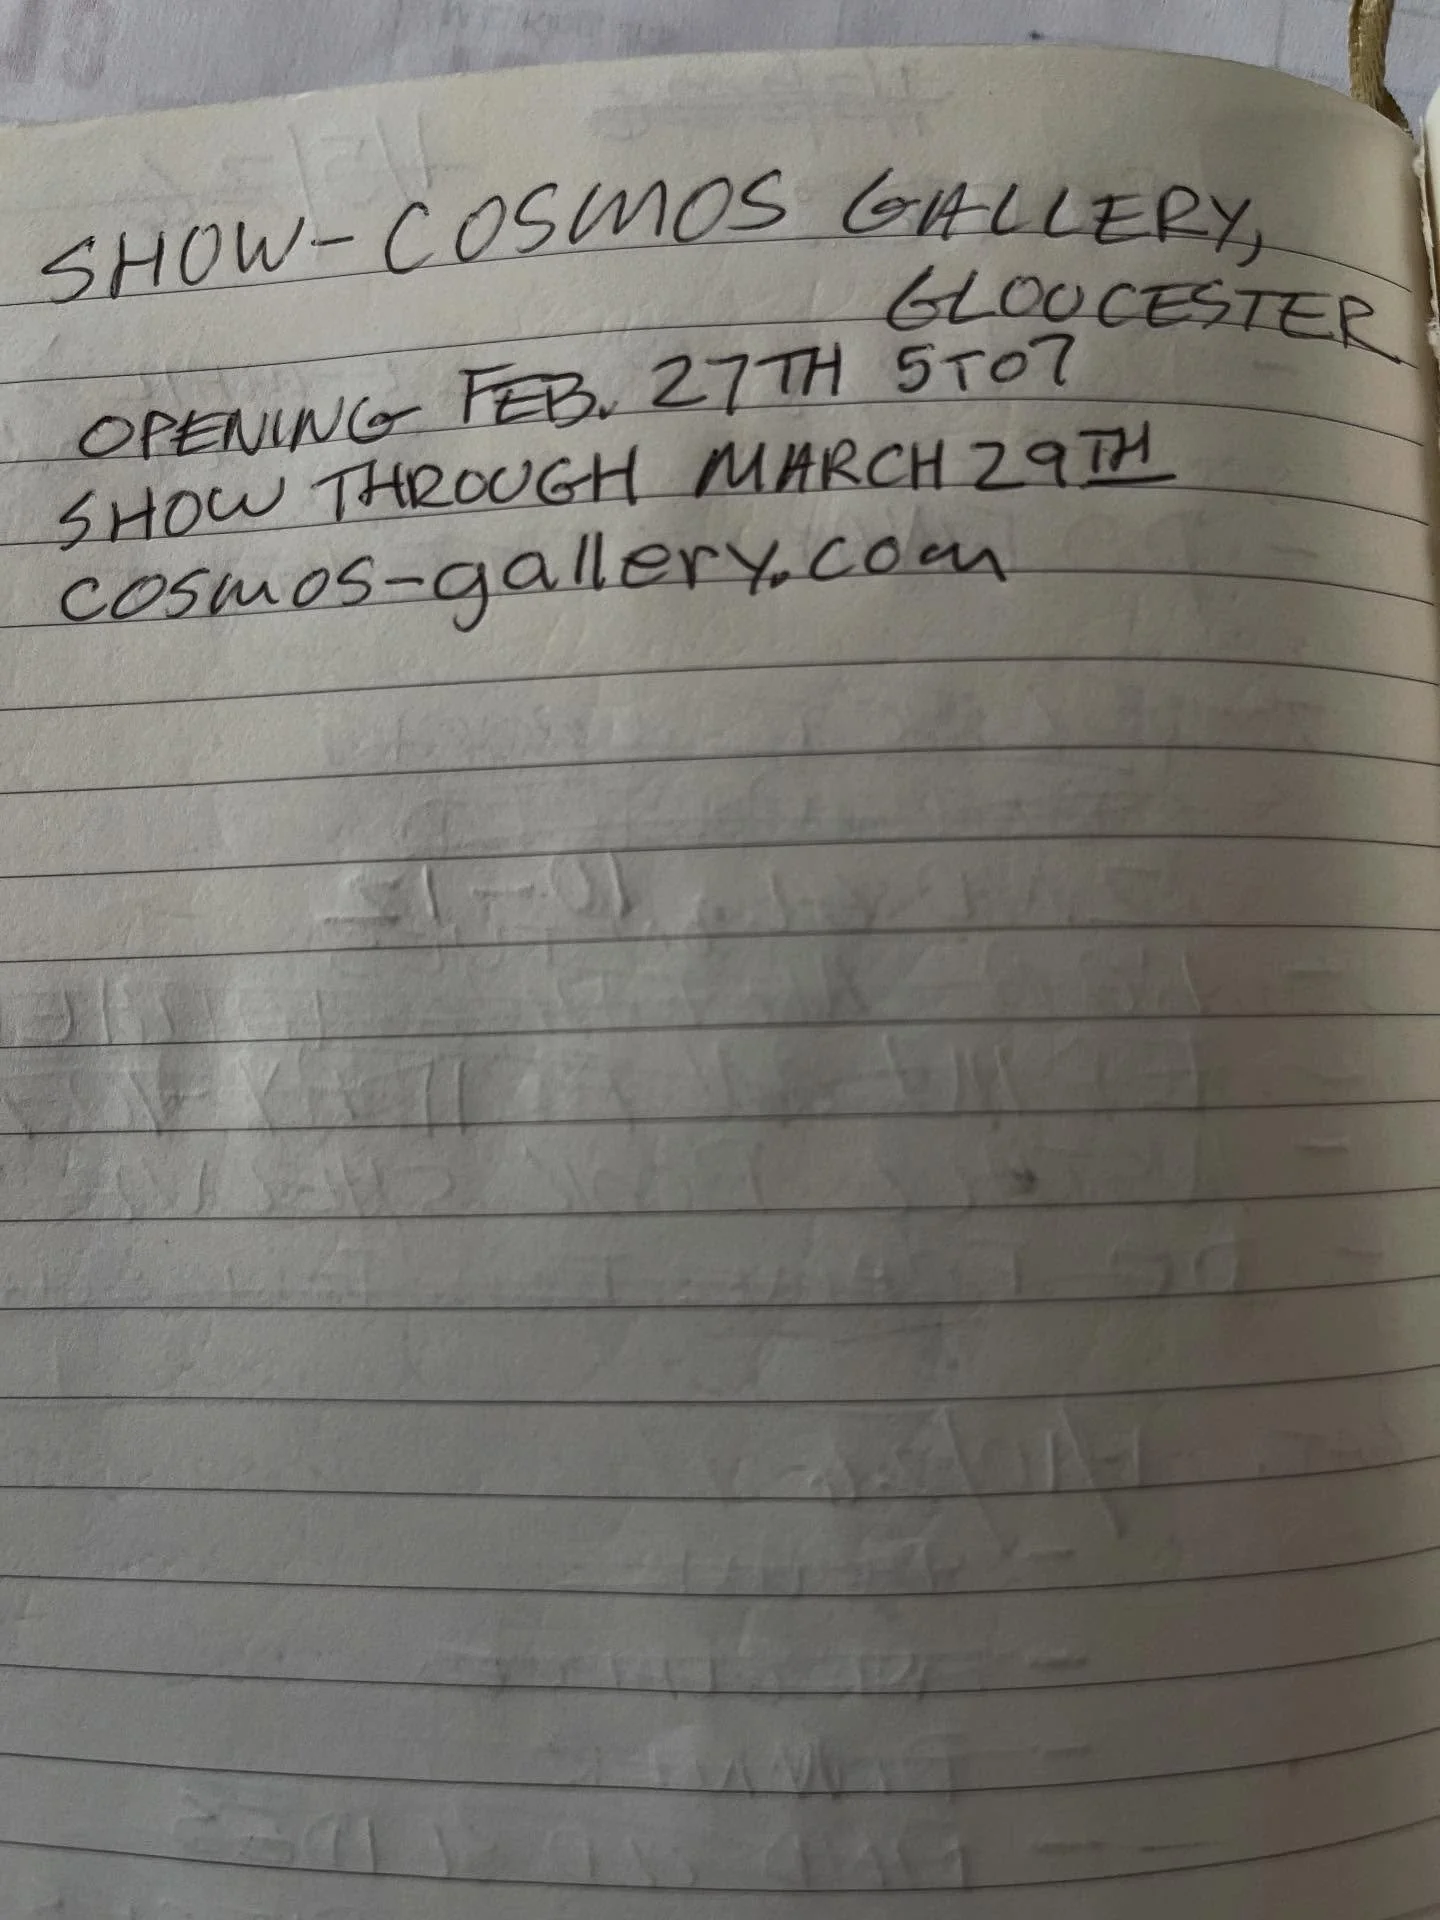 SHOW-COSMOS GALLERY,
GLOUCESTER
OPENING FEB. 27TH 5 TO 7
SHOW THROUGH MARCH 29TH
cosmos-gallery.com